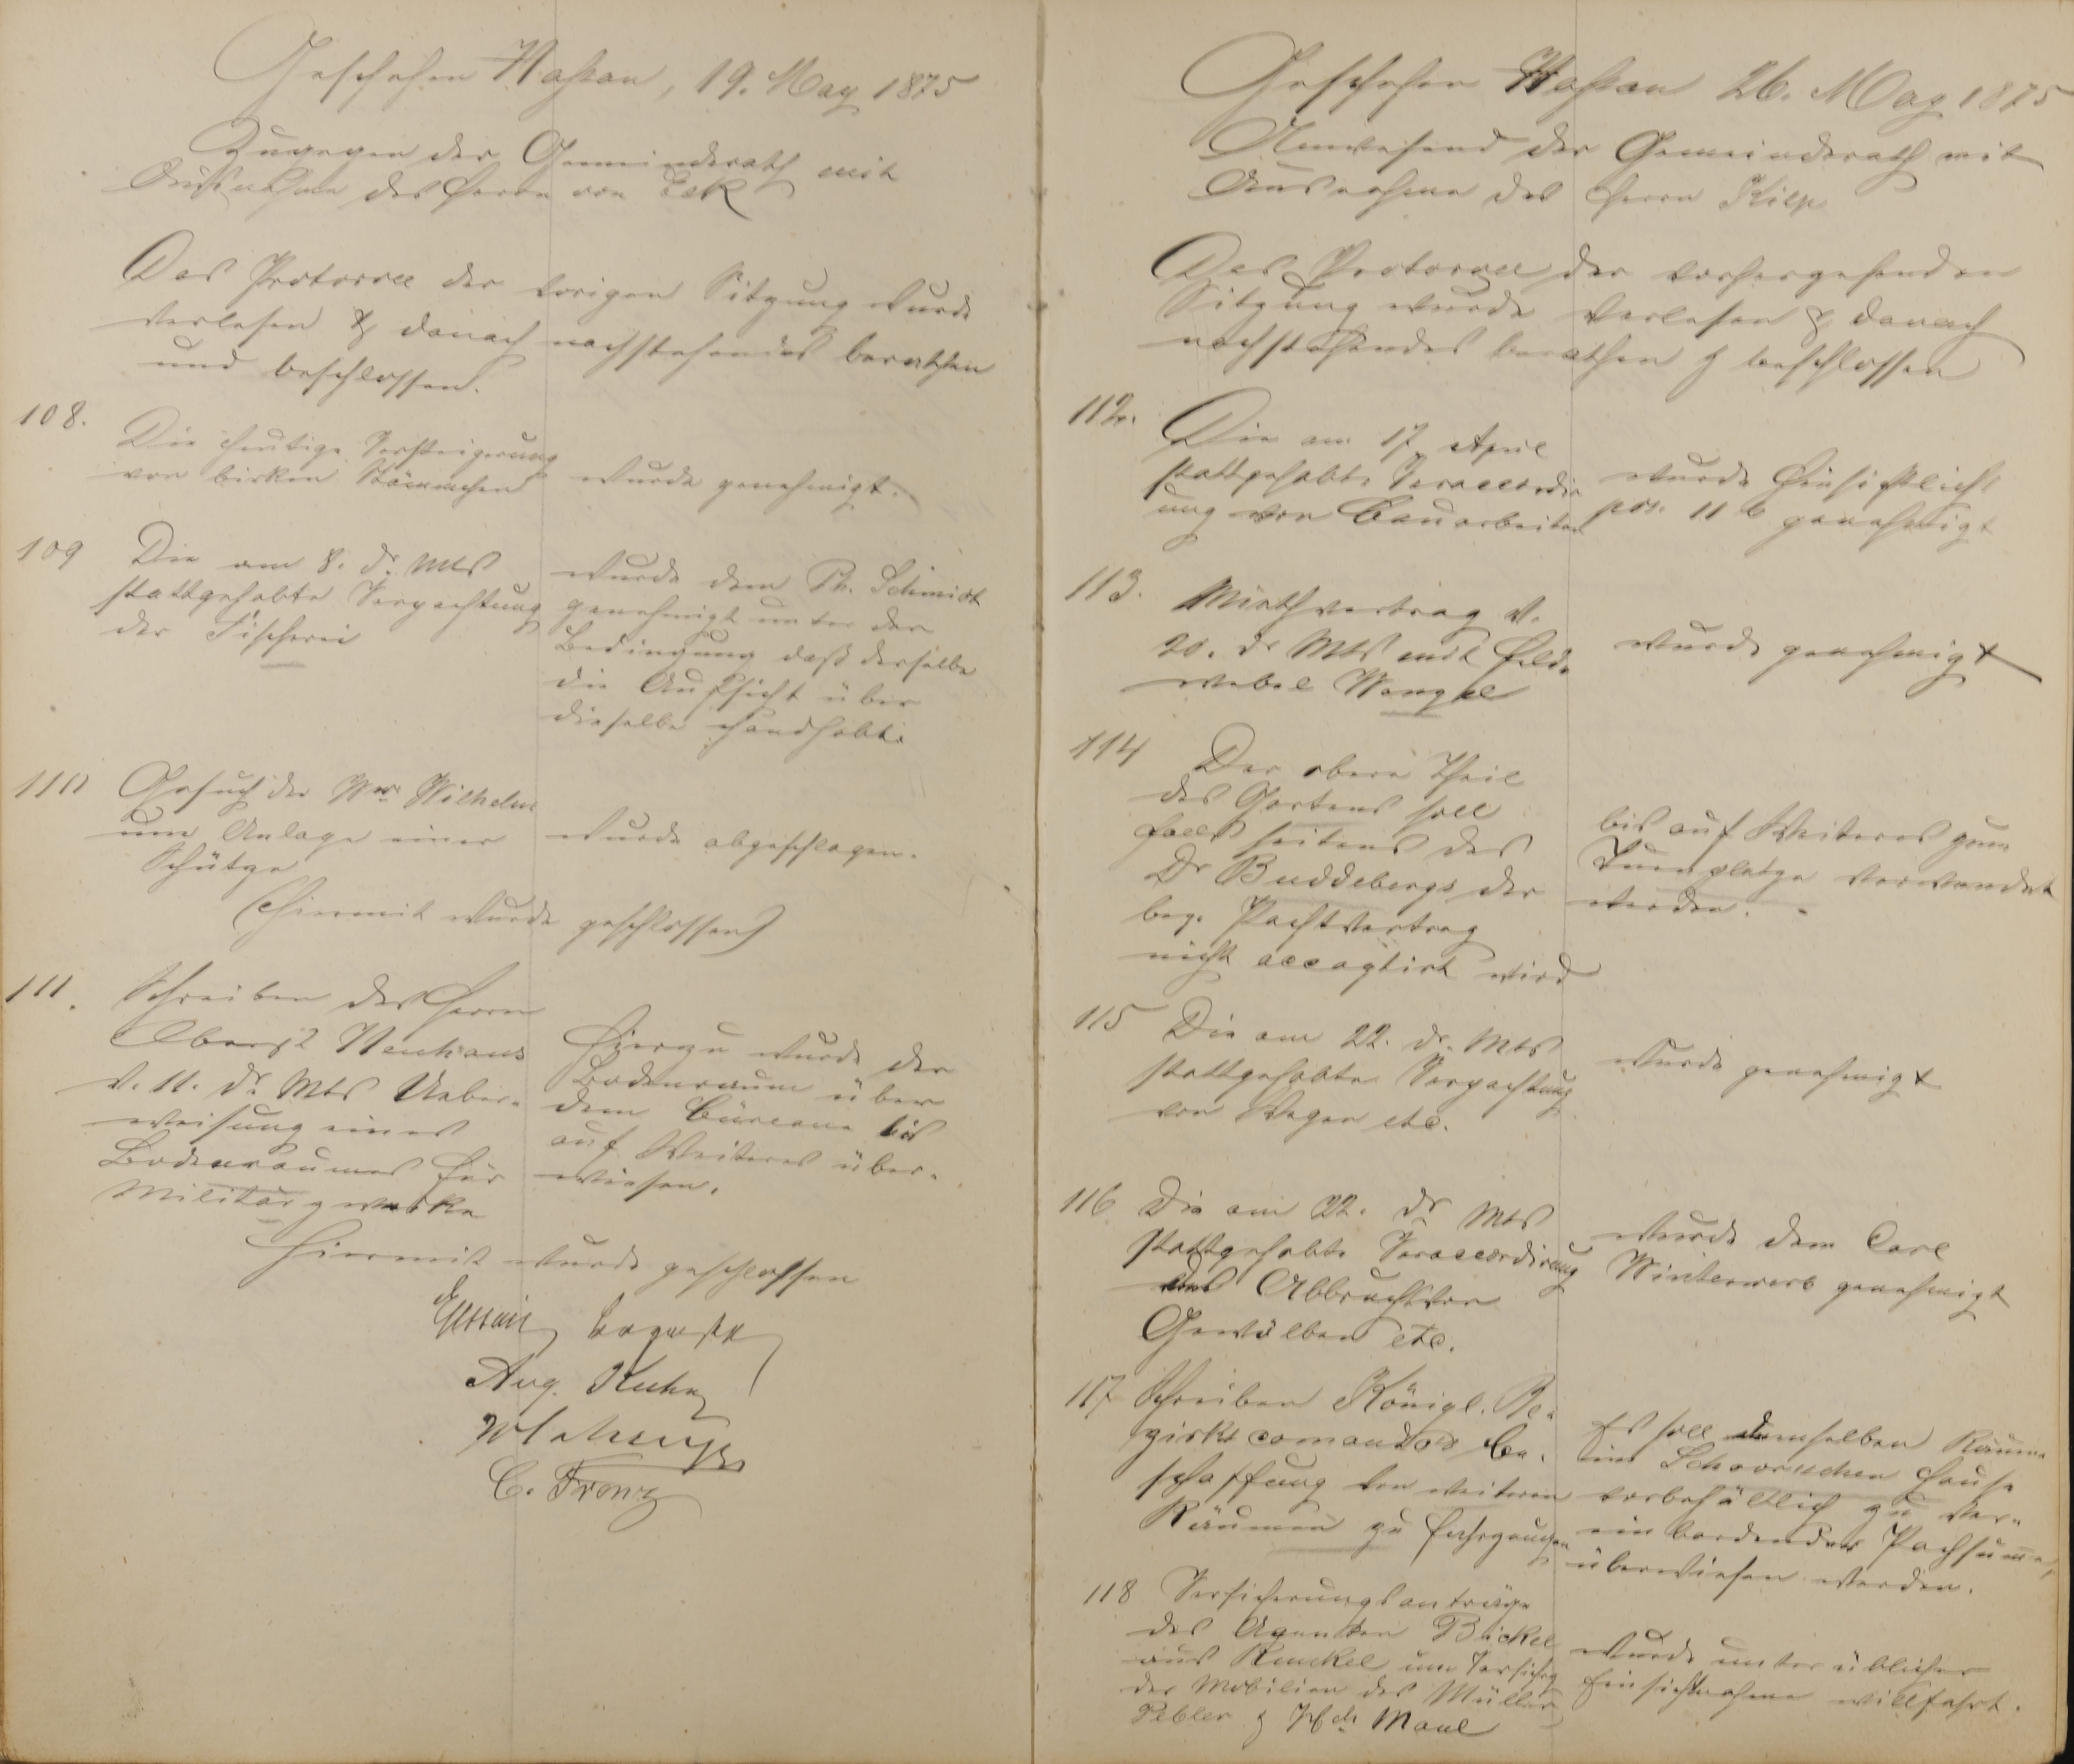 Geschehen Nassau, 19. May 1875
Zugegen der Gemeinderath mit
Ausnahme des Herrn von Eck
Das Protocoll der vorigen Sitzung wurde
verlesen & danach nachstehendes berathen
und beschlossen.
108.
Die heutige Versteigerung
von birken Stämmchen
wurde genehmigt.
109
Die am 8. ds. Mts
stattgehabte Verpachtung
der Fischerei
wurde dem Ph. Schmidt
genehmigt unter der
Bedingung daß derselbe
die Aufsicht über
dieselbe handhabt.
110
Gesuch der Wwe Wilhelm
um Anlage einer
Schütze
wurde abgeschlagen.
(Hiermit wurde geschlossen)
111.
Schreiben des Herrn
Oberst Neuhaus
v. 11. ds. Mts Ueber-
weisung eines
Bodenraumes für
Militärzwecke
Hierzu wurde der
Bodenraum über
dem Büreau bis
auf Weiteres über-
wiesen.
Hiermit wurde geschlossen
Aug. Kuhn
C. Franz
Geschehen Nassau 26. May 1875
Anwesend der Gemeinderath mit
Ausnahme des Herrn Kilp
Das Protocoll der vorhergehenden
Sitzung wurde verlesen & danach
nachstehendes berathen & beschlossen
112.
Die am 17. April
stattgehabte Veraccordir
ung von Bauarbeiten
wurde hinsichtlich
pos. 11 b genehmigt
113.
Miethvertrag v.
20. ds Mts mit Feld-
webel Wenzel
wurde genehmigt
114
Der obere Theil
des Gartens soll
falls seitens des
Dr Buddebergs der
bez. Pachtvertrag
nicht acceptirt wird
bis auf Weiteres zum
Turnplatze verwendet
werden. -
115
Die am 22. ds. Mts
stattgehabte Verpachtung
von Wegen etc.
wurde genehmigt
116
Die am 22. ds Mts
stattgehabte Veraccordirung
des Abbruchs von
Gewölben etc.
wurde dem Carl
Winterwerb genehmigt
117
Schreiben Königl. Be-
zirks comandos Be-
schaffung von weiteren
Räumen zu
Es soll demselben Räume
im Hause
vorbehältlich zu ver-
einbarender Pachsume,
überwiesen werden.
118
Versicherungsanträge
des Agenten Bickel
aus Runkel um Versichrg
der Mobilien des Müller
Pebler & Maul
wurde unter üblicher
Einsichtnahme willfahrt.